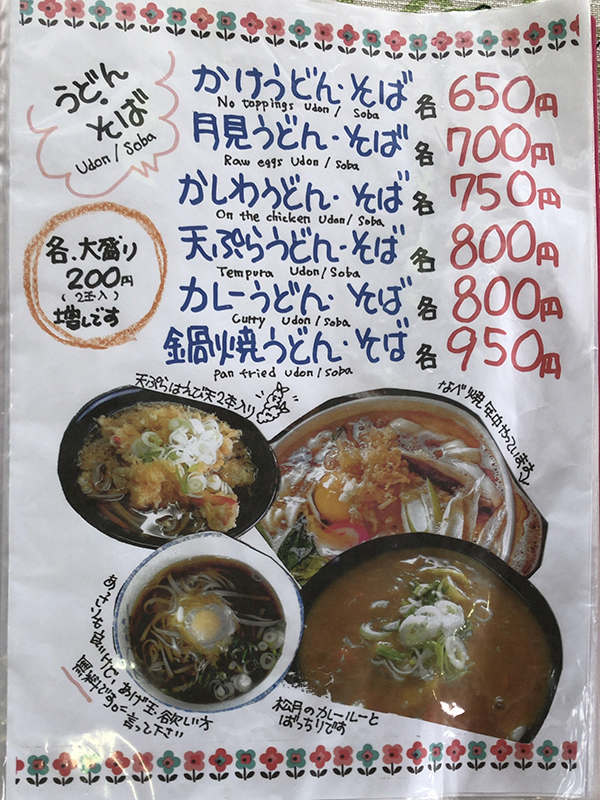 うどん
・
そば
Udon / Soba
かけうどん・そば 各 650円
No toppings Udon / Soba
月見うどん・そば 各 700円
Raw eggs Udon / Soba
かしわうどん・そば 各 750円
On the chicken Udon / Soba
天ぷらうどん・そば 各 800円
Tempura Udon / Soba
カレーうどん・そば 各 800円
Curry Udon / Soba
鍋焼うどん・そば 各 950円
pan fried udon / soba
各、大盛り
200円
(2玉入)
増しです
天ぷらはえび天2本入り
なべ焼 年中やっています
あっさりな良いけど、あげ玉欲しい方
無料ですので
言って下さい!!
松月のカレールーと
ばっちりです